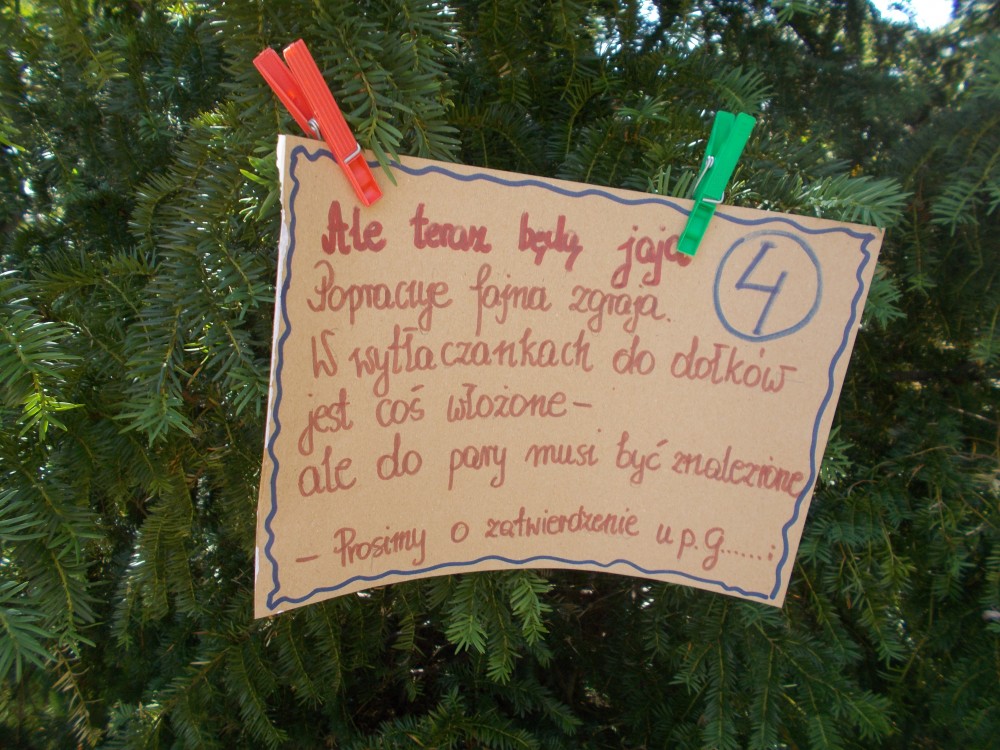 Ale teraz będą jaja
4
Popracuje fajna zgraja.
W wytłaczankach do dołków
jest coś włożone-
ale do pary musi być znalezione
- Prosimy o zatwierdzenie u p. G......: